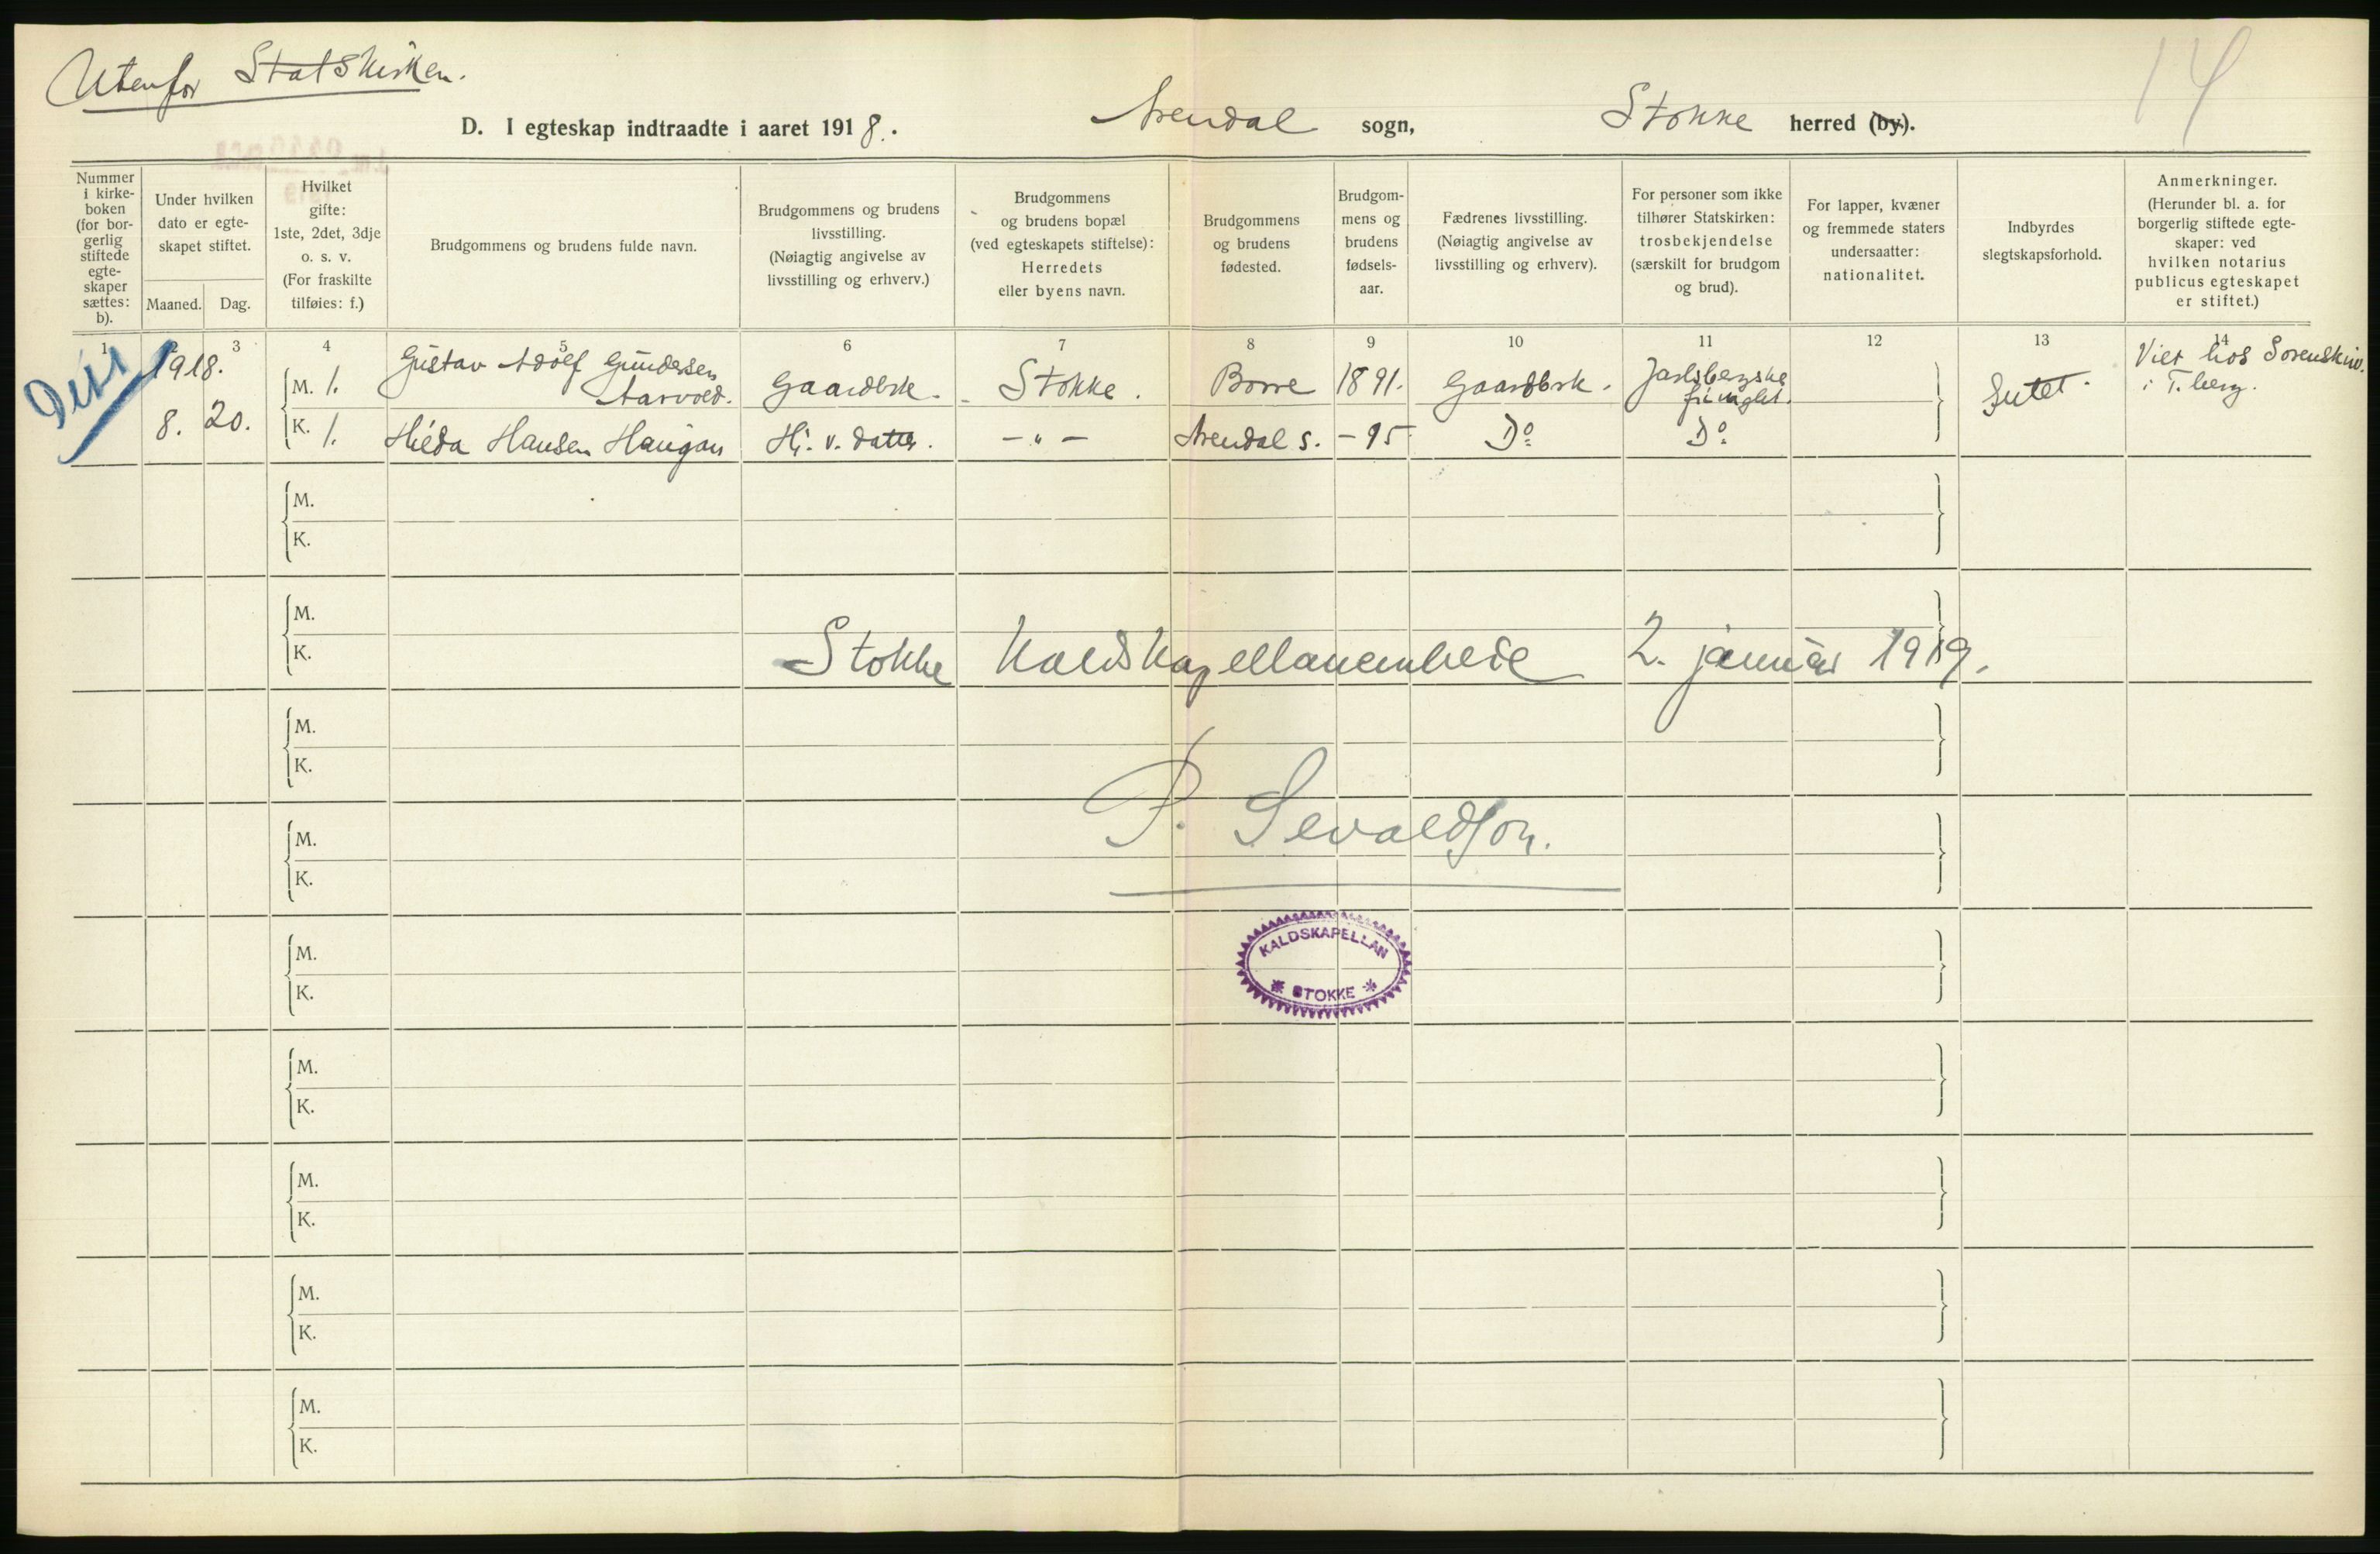 Utenfor Statskirken.
14
D. I egteskap indtraadte i aaret 1918. Arendal sogn, Stokke herred (by).
Nummer i kirke-boken (for bor-gerlig stiftede egte-skaper sættes: b).
Under hvilken dato er egte-skapet stiftet.
Maaned. Dag.
Hvilket gifte: 1ste, 2det, 3dje o. s. v. (For fraskilte tilføies: f.)
Brudgommens og brudens fulde navn.
Brudgommens og brudens livsstilling. (Nøiagtig angivelse av livsstilling og erhverv.)
Brudgommens og brudens bopæl (ved egteskapets stiftelse): Herredets eller byens navn.
Brudgommens og brudens fødested.
Brudgom-mens og brudens fødsels-aar.
Fædrenes livsstilling. (Nøiagtig angivelse av livsstilling og erhverv).
For personer som ikke tilhører Statskirken: trosbekjendelse (særskilt for brudgom og brud).
For lapper, kvæner og fremmede staters undersaatter: nationalitet.
Indbyrdes slegtskapsforhold.
Anmerkninger. (Herunder bl. a. for borgerlig stiftede egte-skaper: ved hvilken notarius publicus egteskapet er stiftet.)
1 2 3 4 5 6 7 8 9 10 11 12 13 14
1918.
M. 1. Gustav Adolf Gundersen Aarvold. Gaardbrk. Stokke. Borre 1891. Gaardbrk. Jarlsbergske frimght. Intet. Viet hos Sorenskriv. i T.berg.
8. 20. K. 1. Hilda Hansen Haugan Hj. v. datter. -"- Arendal s. -95 Do Do
M.
K.
M.
K.
Stokke Kaldskapellanembede 2. januar 1919.
M.
K.
P. Sevaldson.
M.
K.
KALDSKAPELLAN
* STOKKE *
M.
K.
M.
K.
M.
K.
M.
K.
M.
K.